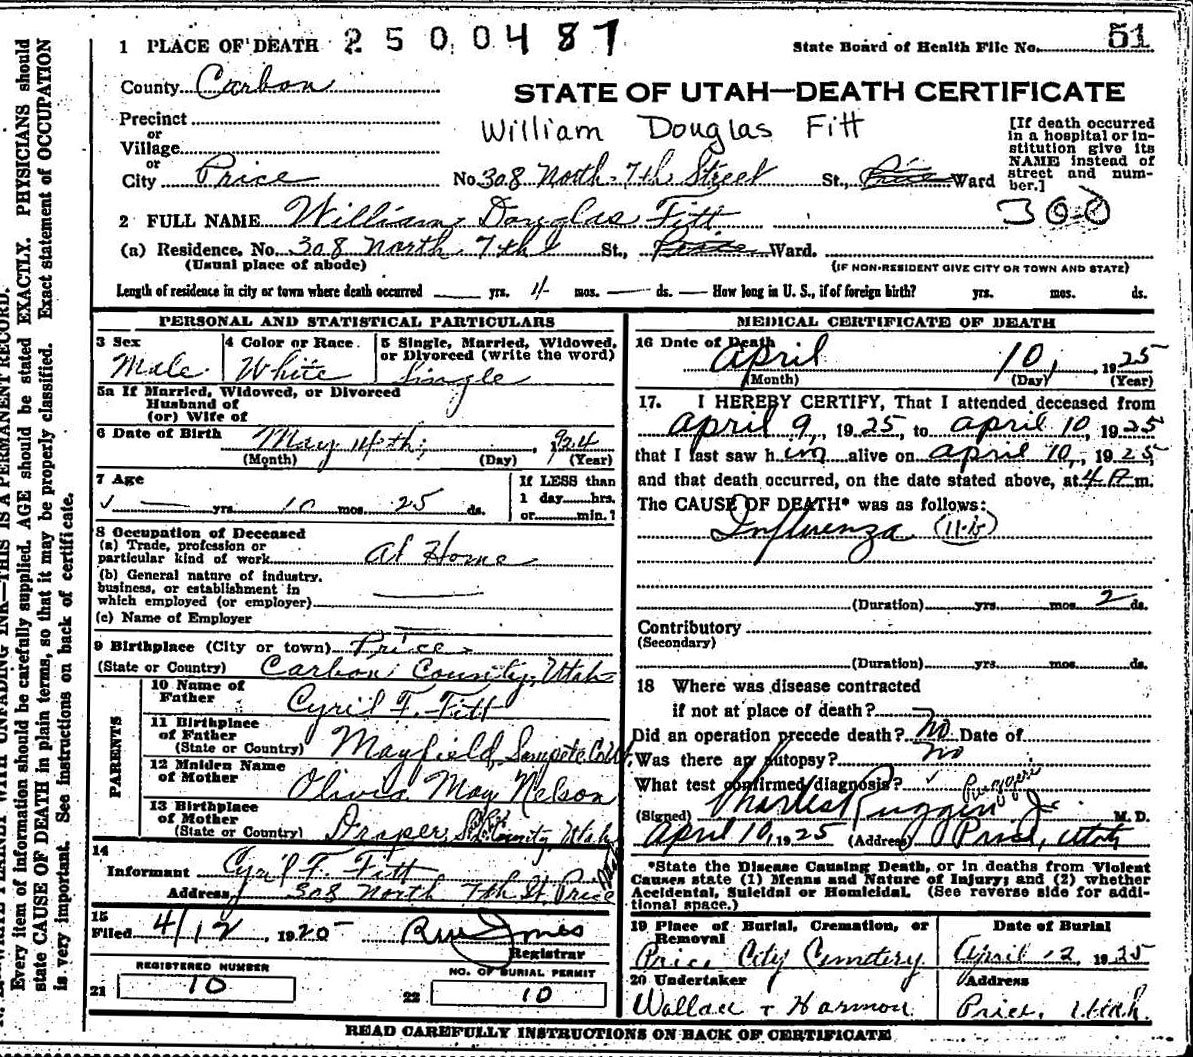 1 PLACE OF DEATH 2500487
State Board of Health File No. 51
County Carbon
STATE OF UTAH—DEATH CERTIFICATE
Precinct
or
Village
or
City Price No. 308 North 7th Street St., Ward
William Douglas Fitt
[If death occurred
in a hospital or in-
stitution give its
NAME instead of
street and num-
ber.]
300
2 FULL NAME William Douglas Fitt
(a) Residence. No. 308 North 7th St., Price Ward.
(Usual place of abode)
(IF NON-RESIDENT GIVE CITY OR TOWN AND STATE)
Length of residence in city or town where death occurred yrs. 11 mos. — ds. — How long in U. S., if of foreign birth? yrs. mos. ds.
PERSONAL AND STATISTICAL PARTICULARS
3 Sex
Male
4 Color or Race
White
5 Single, Married, Widowed,
or Divorced (write the word)
Single
5a If Married, Widowed, or Divorced
Husband of
(or) Wife of
6 Date of Birth May 14th, 1924
(Month) (Day) (Year)
7 Age
— yrs. 10 mos. 25 ds.
If LESS than
1 day hrs.
or min.?
8 Occupation of Deceased
(a) Trade, profession or
particular kind of work At Home
(b) General nature of industry,
business, or establishment in
which employed (or employer)
(c) Name of Employer
9 Birthplace (City or town) Price
(State or Country) Carbon County, Utah
PARENTS
10 Name of
Father Cyril F. Fitt
11 Birthplace
of Father
(State or Country) Mayfield, Sanpete Co Ut.
12 Maiden Name
of Mother Olivia May Nelson
13 Birthplace
of Mother
(State or Country) Draper, S.L. County, Utah
14
Informant Cyril F. Fitt
Address 308 North 7th St Price
15
Filed 4/12, 1925
Registrar
REGISTERED NUMBER
21 10
NO. OF BURIAL PERMIT
22 10
MEDICAL CERTIFICATE OF DEATH
16 Date of Death
April 10, 1925
(Month) (Day) (Year)
17. I HEREBY CERTIFY, That I attended deceased from
April 9, 1925, to April 10, 1925
that I last saw him alive on April 10, 1925,
and that death occurred, on the date stated above, at 4 m.
The CAUSE OF DEATH* was as follows:
Influenza (11-b)
(Duration) yrs. mos. 2 ds.
Contributory
(Secondary)
(Duration) yrs. mos. ds.
18 Where was disease contracted
if not at place of death?
Did an operation precede death? No Date of
Was there an autopsy? no
What test confirmed diagnosis?
Ruggeri
(Signed) Charles Ruggeri Jr. M. D.
April 10, 1925 (Address) Price, Utah
*State the Disease Causing Death, or in deaths from Violent
Causes state (1) Means and Nature of Injury; and (2) whether
Accidental, Suicidal or Homicidal. (See reverse side for addi-
tional space.)
19 Place of Burial, Cremation, or
Removal
Price City Cemetery
Date of Burial
April 12, 1925
20 Undertaker
Wallace & Harmon
Address
Price, Utah.
READ CAREFULLY INSTRUCTIONS ON BACK OF CERTIFICATE
WRITE PLAINLY WITH UNFADING INK—THIS IS A PERMANENT RECORD.
Every item of information should be carefully supplied. AGE should be stated EXACTLY. PHYSICIANS should
state CAUSE OF DEATH in plain terms, so that it may be properly classified. Exact statement of OCCUPATION
is very important. See instructions on back of certificate.